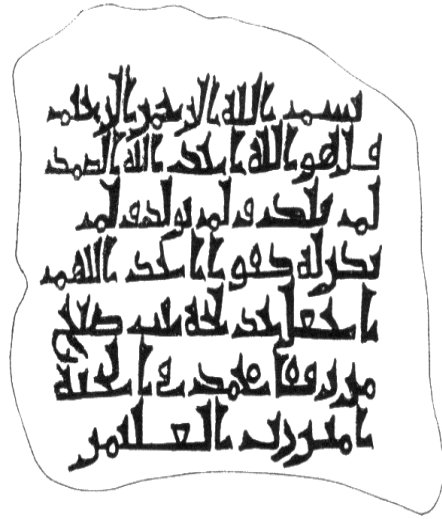 بسم الله الرحمن الرحيم
قل هو الله احد الله الصمد
لم يلد و لم يولد و لم
يكن له كفوا احد اللهم
اجعل خديجة بنت
من رفقا محمد في الجنة
امين رب العلمين